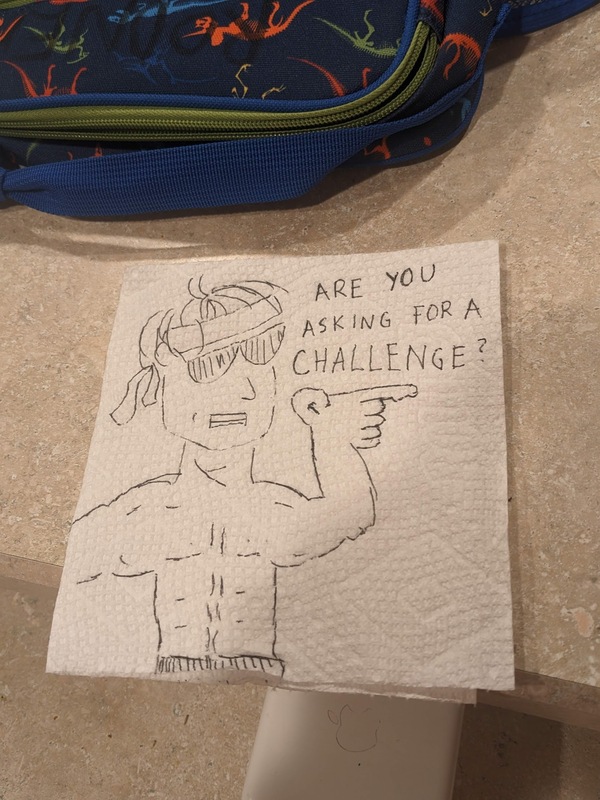 ARE YOU
ASKING FOR A
CHALLENGE?